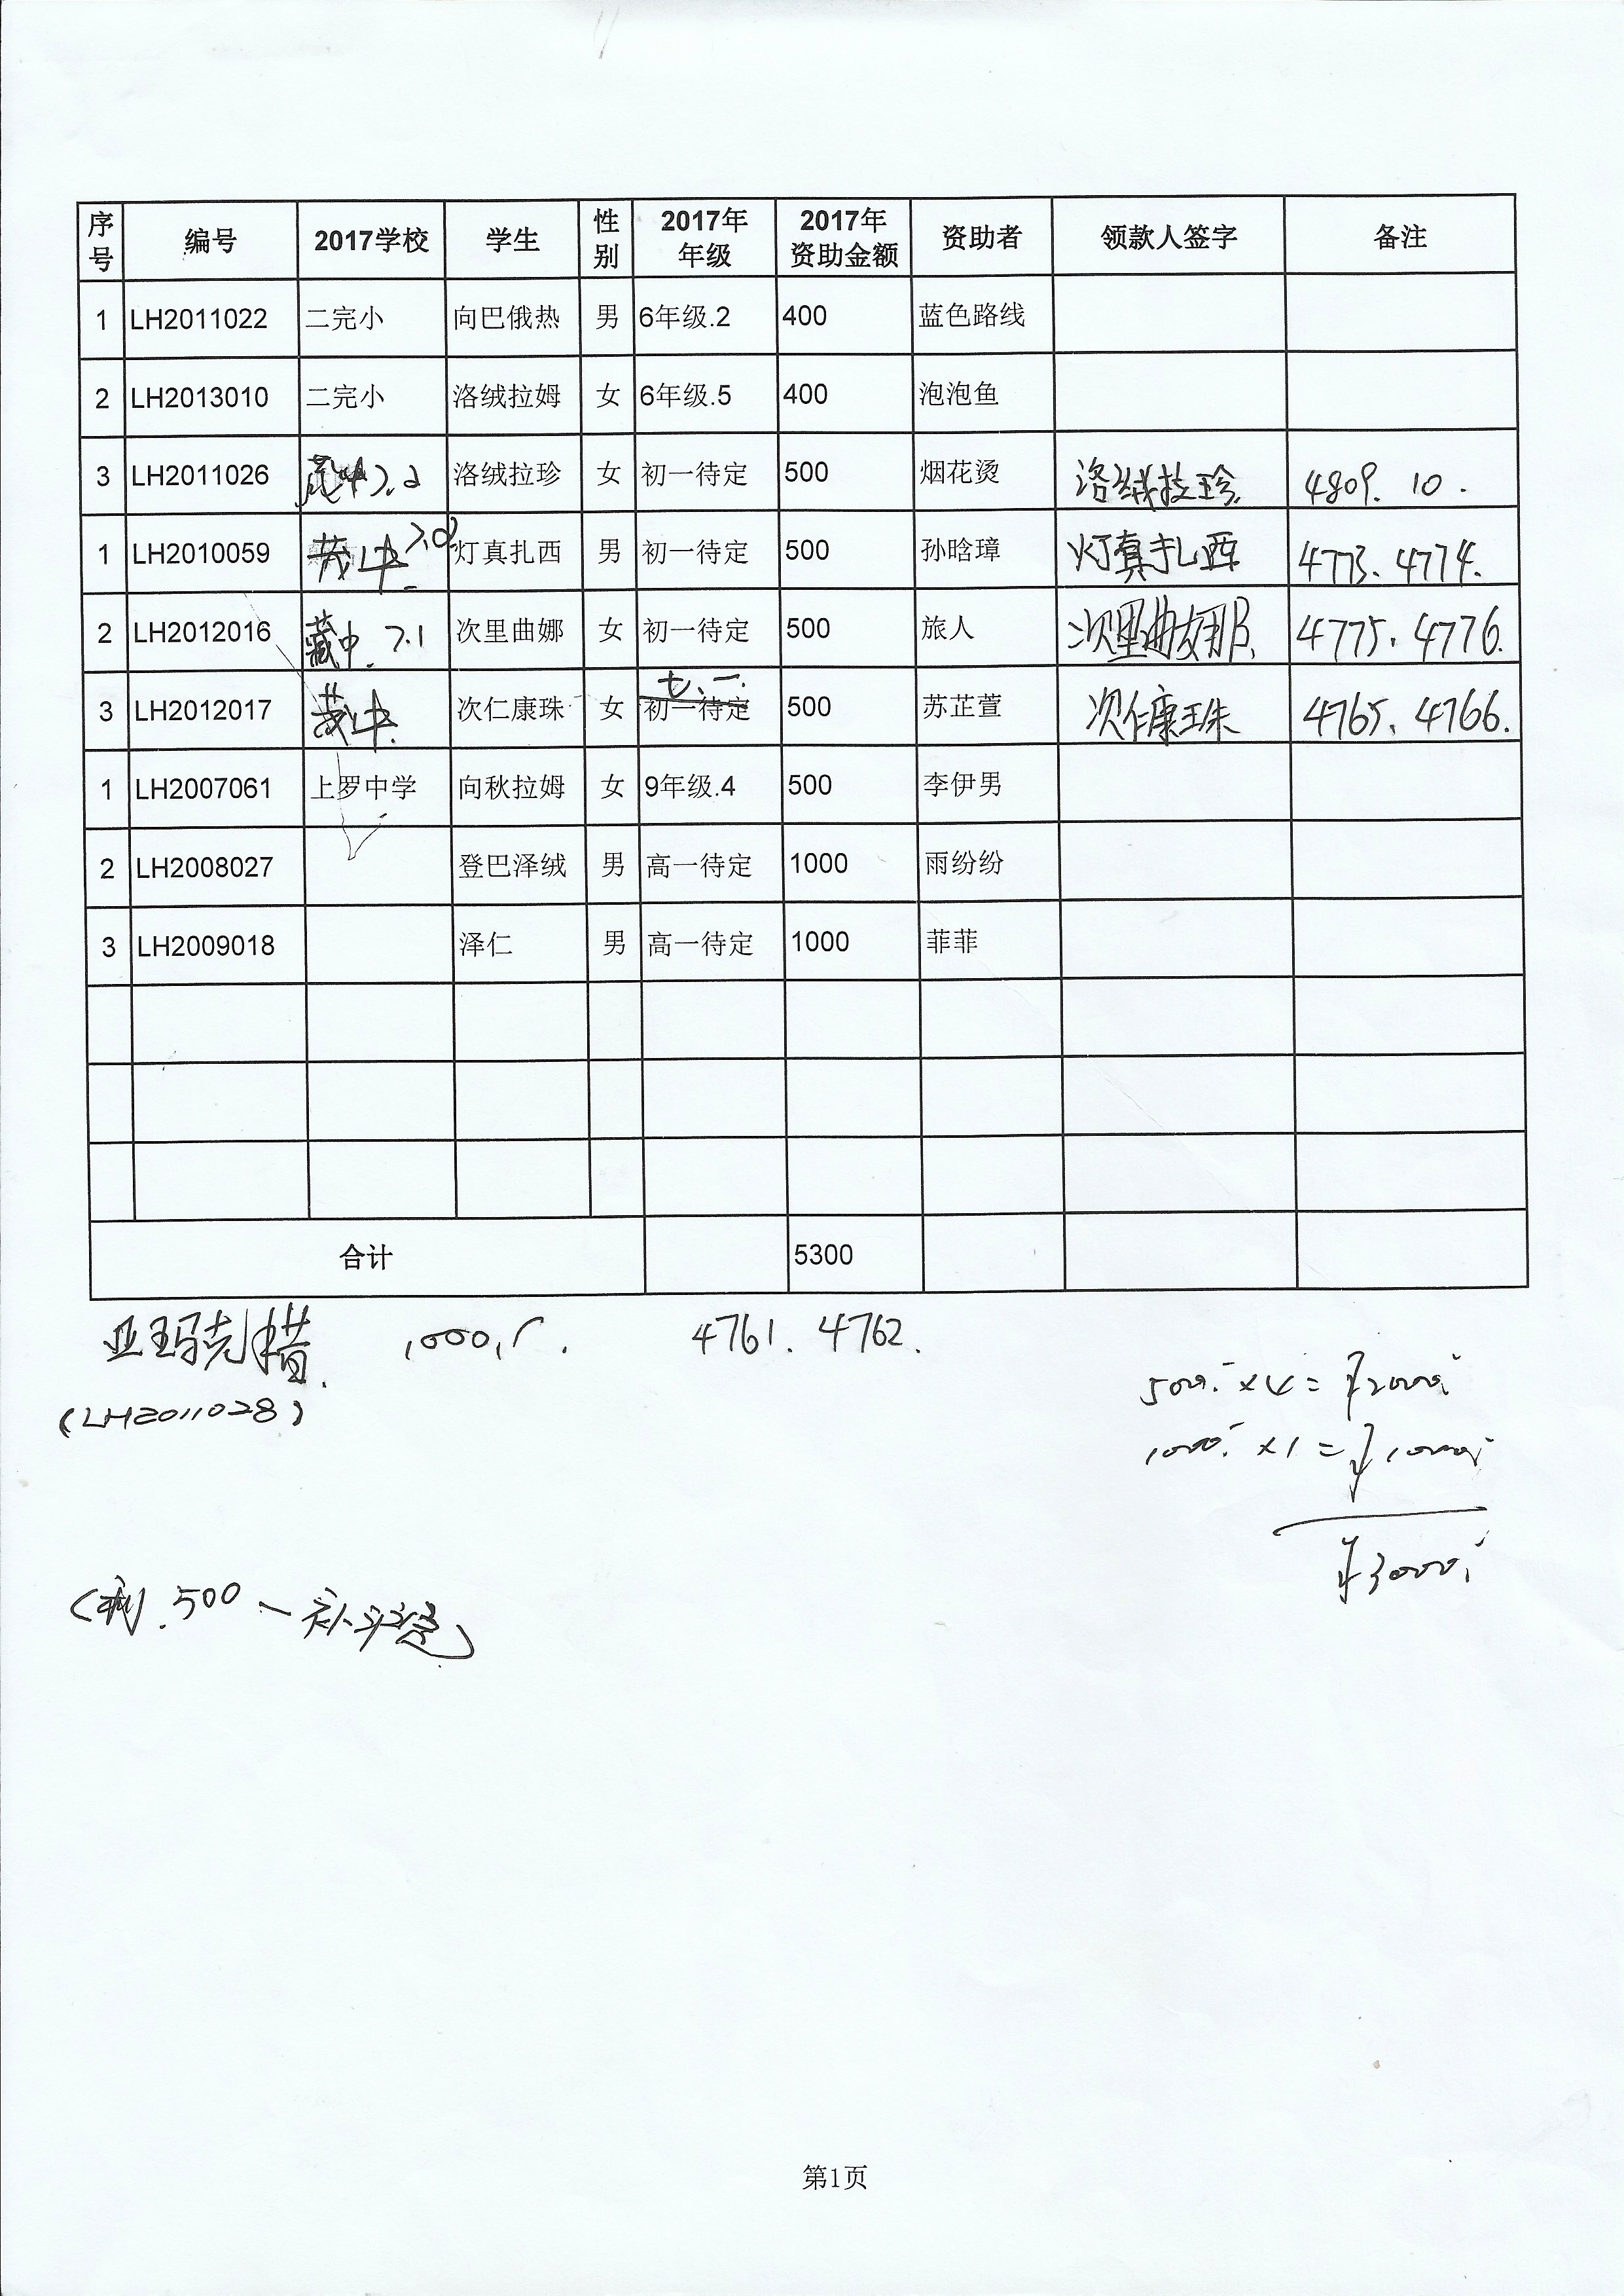 序号 编号 2017学校 学生 性别 2017年年级 2017年资助金额 资助者 领款人签字 备注
1 LH2011022 二完小 向巴俄热 男 6年级.2 400 蓝色路线
2 LH2013010 二完小 洛绒拉姆 女 6年级.5 400 泡泡鱼
3 LH2011026 藏中7.2 洛绒拉珍 女 初一待定 500 烟花烫 洛绒拉珍 4809. 10.
1 LH2010059 藏中 灯真扎西 男 初一待定 500 孙晗璋 灯真扎西 4773、4774.
2 LH2012016 藏中. 7.1 次里曲娜 女 初一待定 500 旅人 次里曲娜 4775、4776.
3 LH2012017 藏中. 次仁康珠 女 七、一. 初一待定 500 苏芷萱 次仁康珠 4765、4766.
1 LH2007061 上罗中学 向秋拉姆 女 9年级.4 500 李伊男
2 LH2008027 登巴泽绒 男 高一待定 1000 雨纷纷
3 LH2009018 泽仁 男 高一待定 1000 菲菲
合计 5300
亚玛克措. 1000 4761. 4762.
(LH2011028)
500 ×4= ¥2000
1000 ×1= ¥1000
¥3000
500
第1页